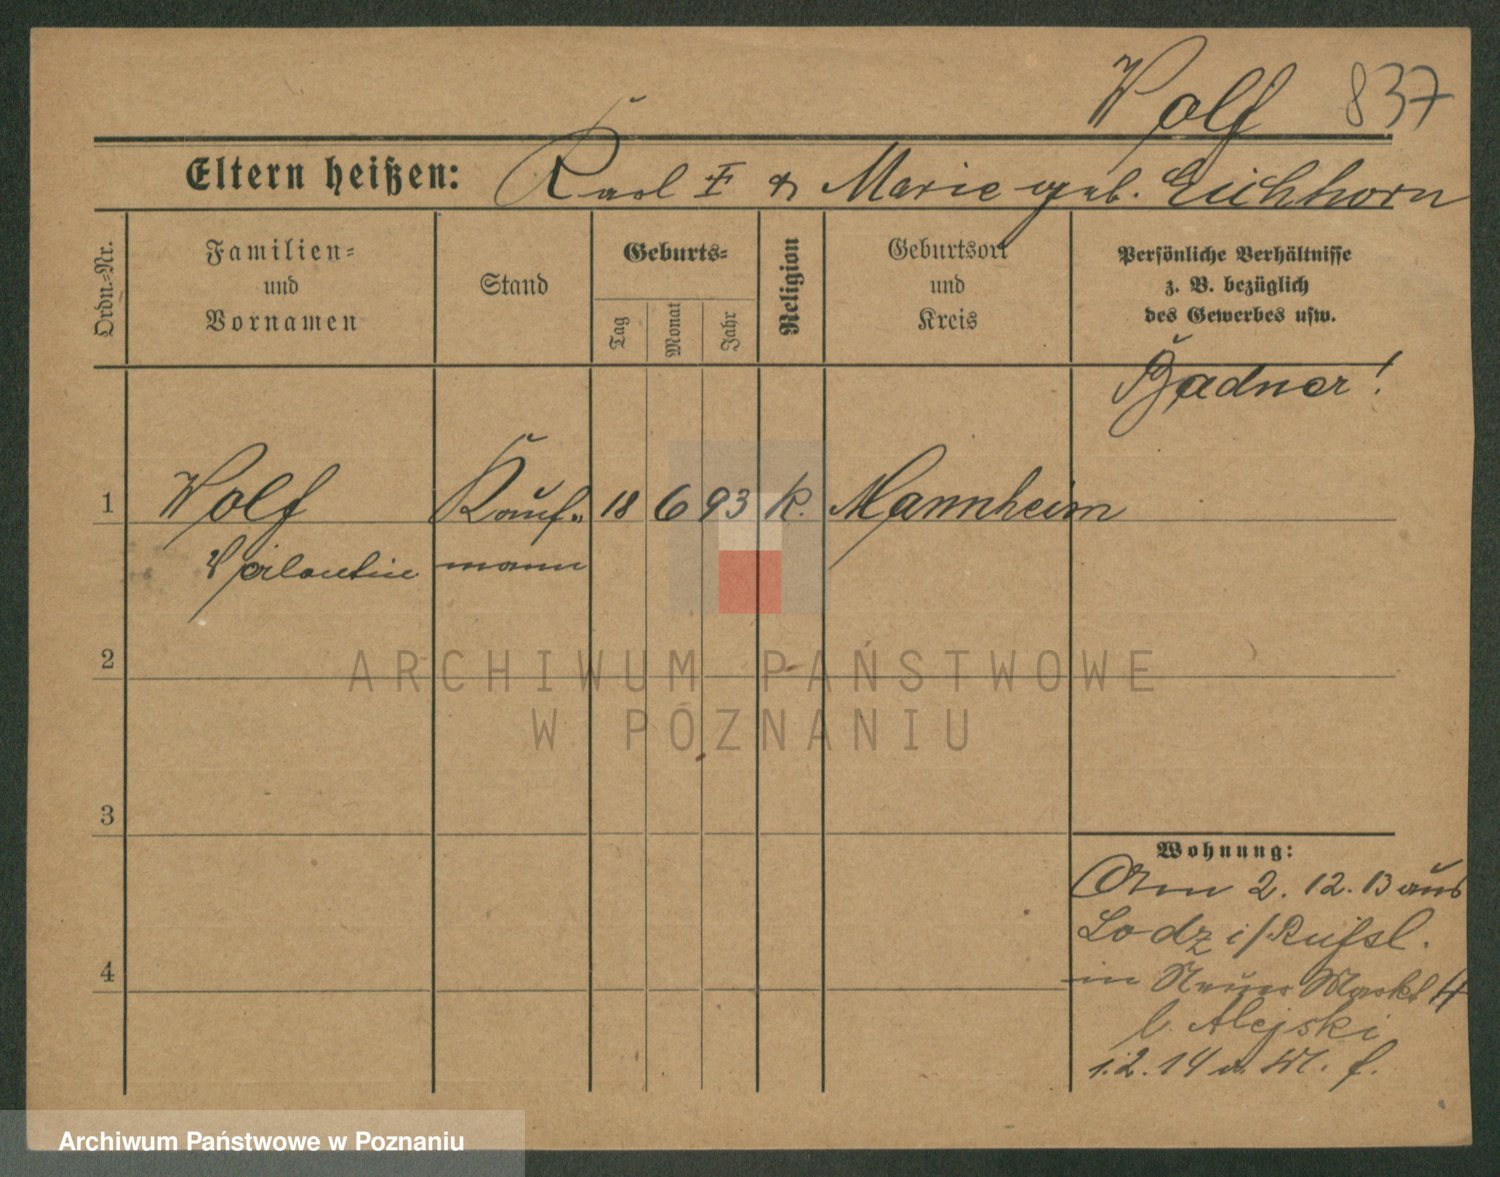 Wolf 837
Eltern heißen: Karl ‡ & Marie geb. Eichhorn
Ordn.-Nr.
Familien- und Vornamen
Stand
Geburts-
Tag
Monat
Jahr
Religion
Geburtsort und Kreis
Persönliche Verhältnisse
z. B. bezüglich
des Gewerbes usw.
Badner!
1 Wolf Kauf- 18 6 93 k. Mannheim
Valentin mann
2
3
4
Wohnung:
Am 2. 12. 13 aus
Lodz i/Rußl.
in Neuer Markt 4
b. Alejski
1.2.14 n.
ARCHIWUM PAŃSTWOWE
W POZNANIU
Archiwum Państwowe w Poznaniu